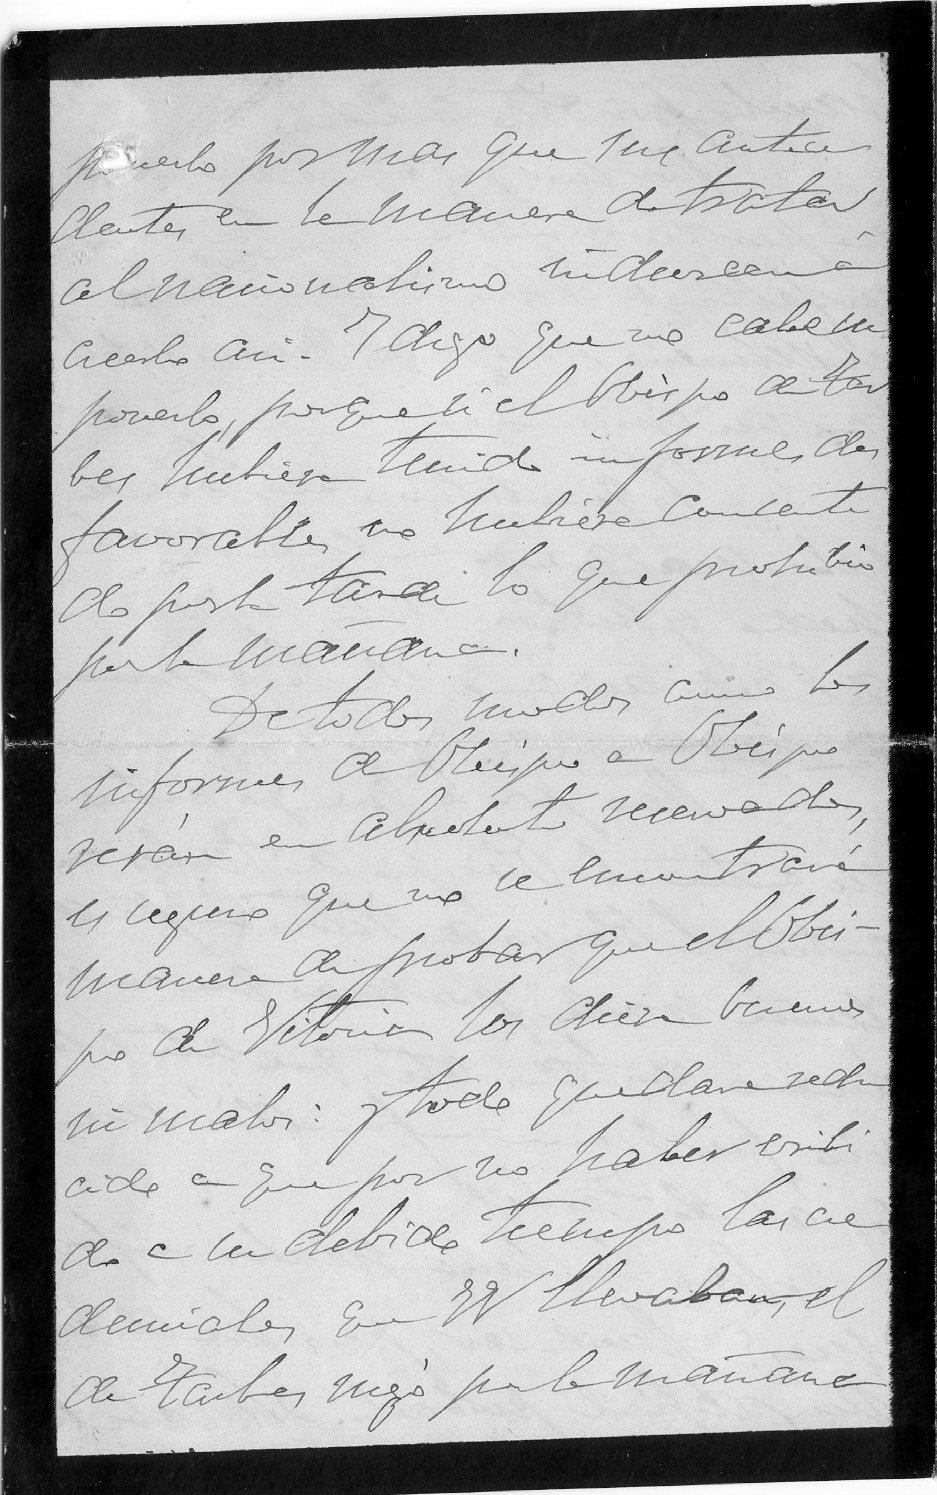 ponerlo por mas que sus antece
dentes en la manera de tratar
al nacionalismo induzcan á
creerlo asi. Y digo que no cabe su
ponerlo, porque si el Obispo de Tar
bes hubiera tenido informes des
favorables no hubiera consenti
do por la tarde lo que prohibió
por la mañana.
De todos modos como los
informes de Obispo a Obispo
serán en absoluto reservados,
es seguro que no se encontrará
manera de probar que el Obis-
po de Vitoria los diera buenos
ni malos: y todo quedara redu
cido a que por no haber exhibi
do a su debido tiempo las cre
denciales que VV llevaban, el
de Tarbes negó por la mañana